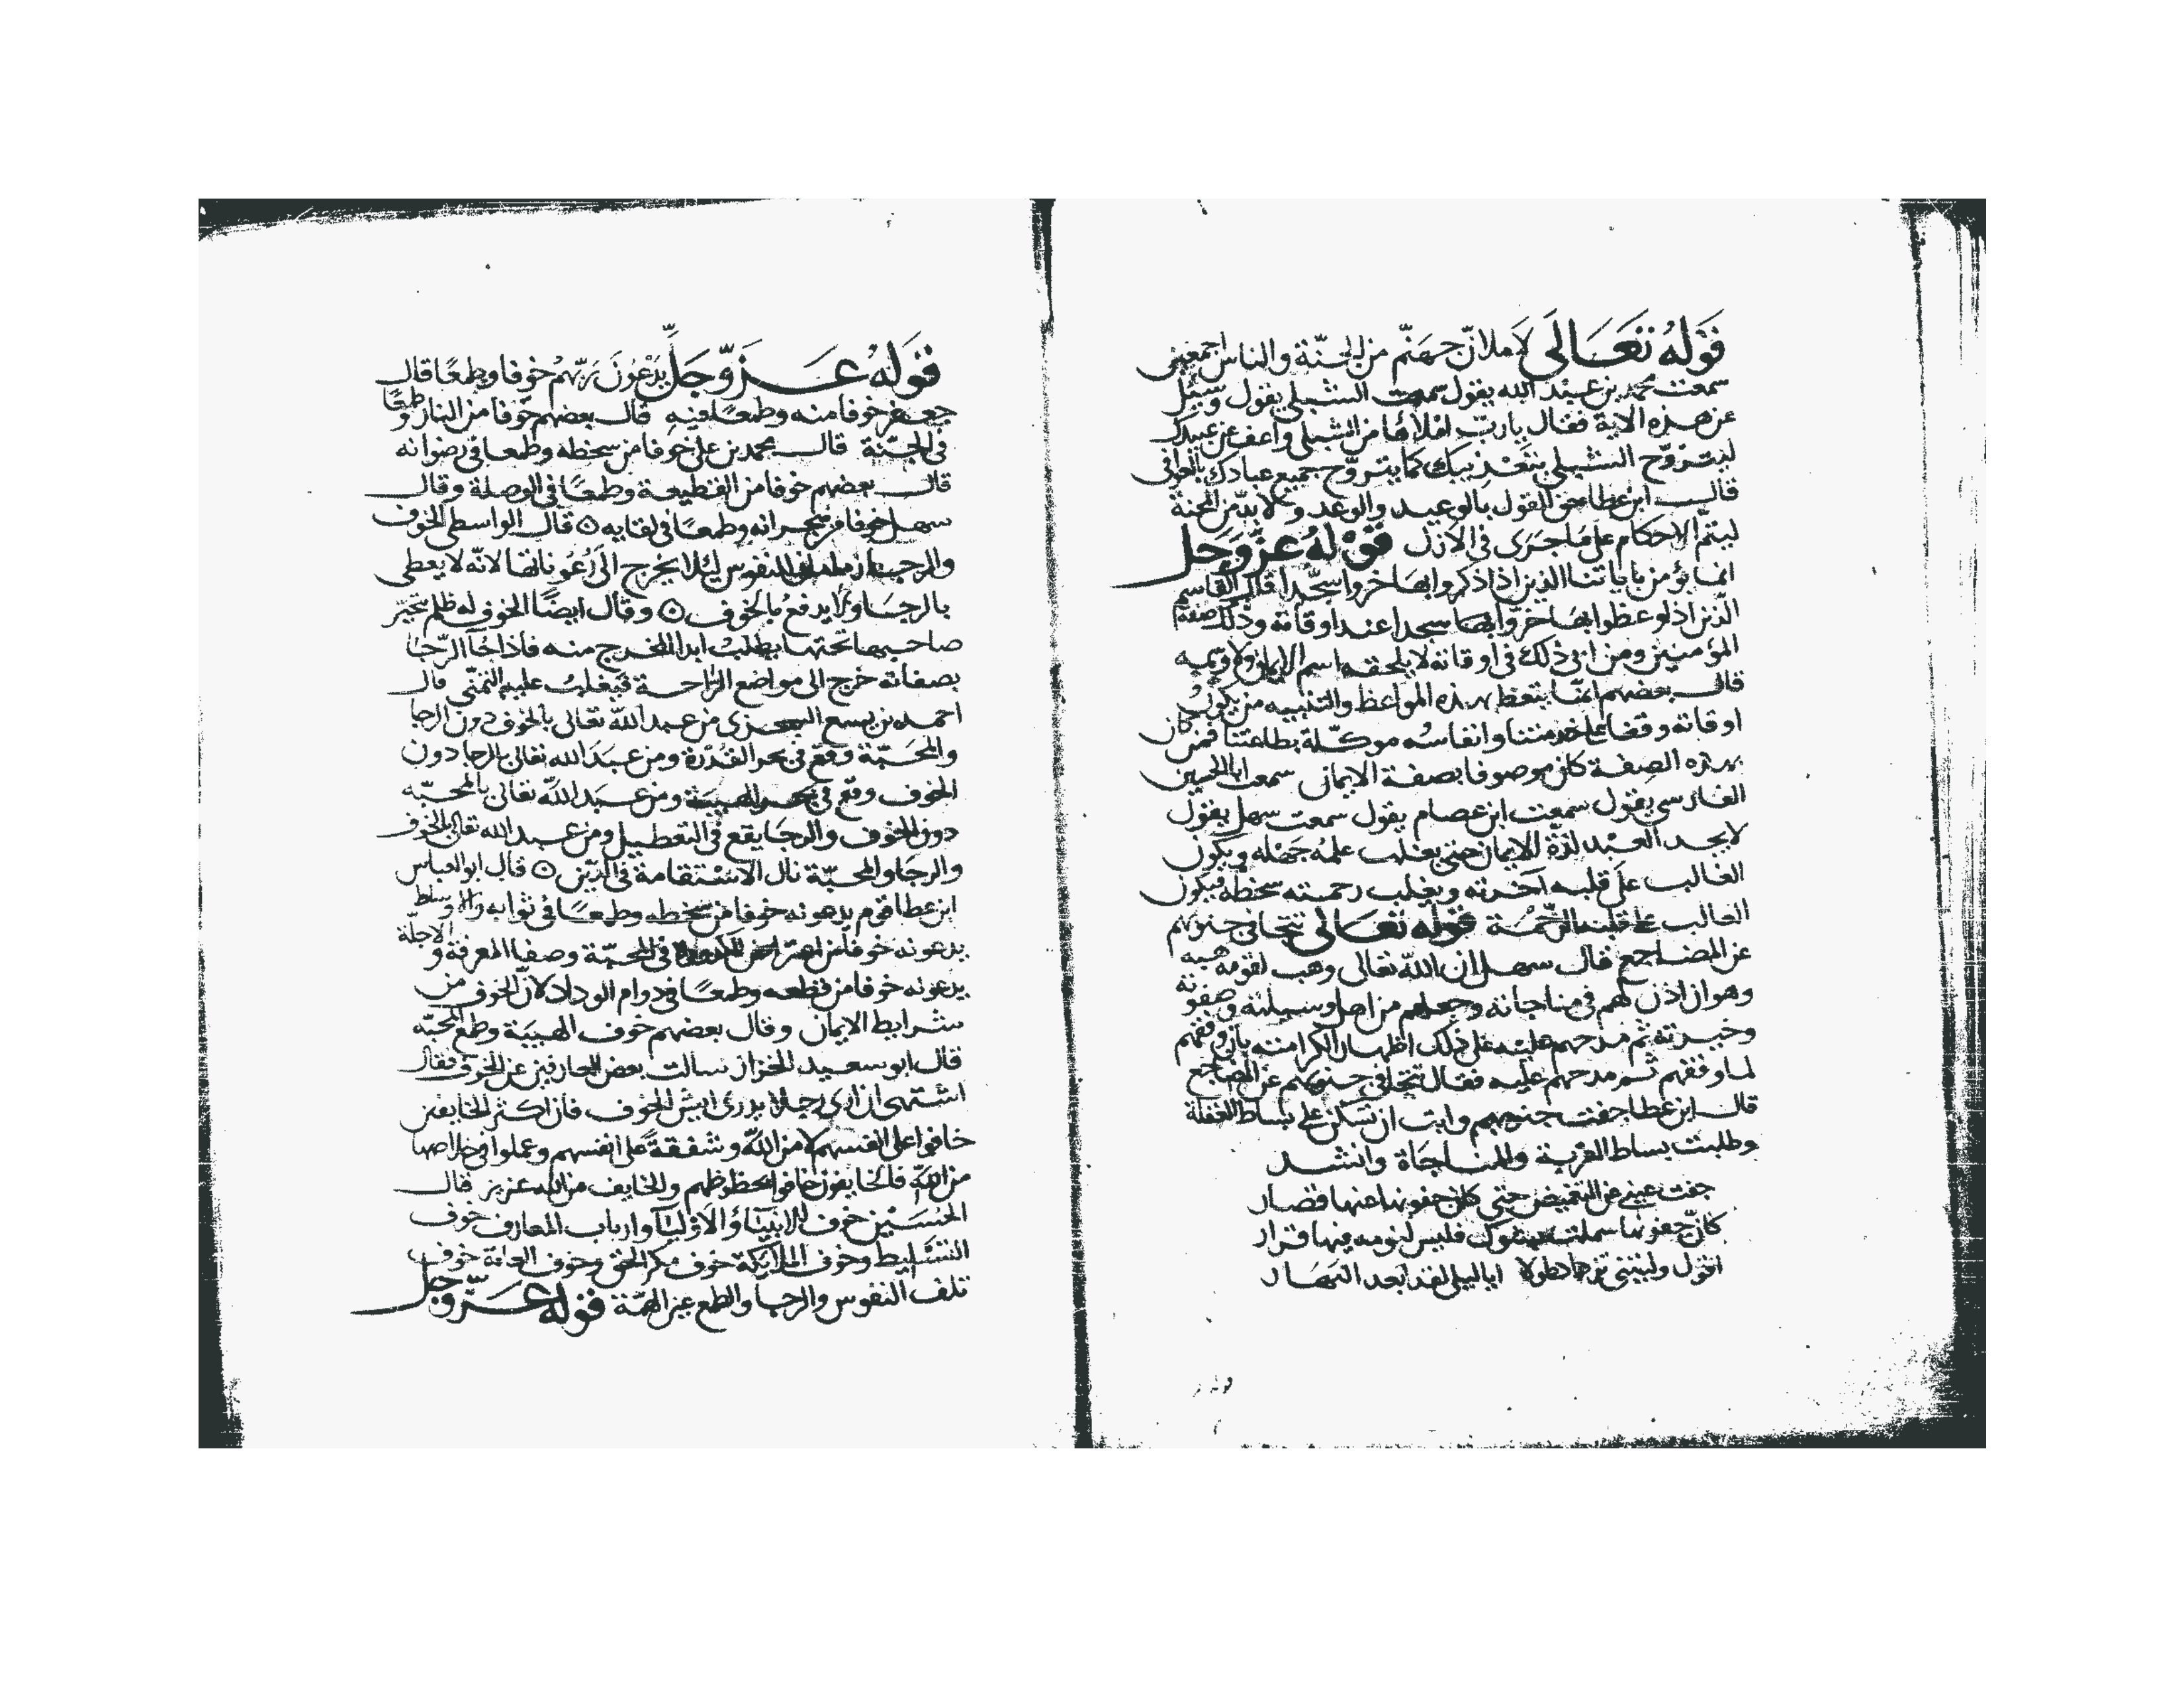 قوله تعالى لاملان جهنم من الجنة والناس اجمعين
سمعت محمد بن عبد الله يقول سمعت الشبلي يقول وسيل
عن هذه الاية فقال يارب املاها من الشبلي واعف عن عبيدك
ليتروح الشبلي بتعذيبك كما يتروح جميع عبادك بالعوافى
قال ابن عطا حق القول بالوعيد والوعد ولا بد من المحنة
ليتم الاحكام على ما جرى في الازل قوله عز وجل
انما يؤمن باياتنا الذين اذا ذكروا بها خروا سجدا قال القاسم
الذين اذا وعظوا بها خروا بها سجدا عند اوقاته وذلك صفة
المؤمنين ومن ابى ذلك في اوقاته لا يلحقه اسم الايمان ولا وسمه
قال بعضهم انما يتعظ بهذه المواعظ والتنبيه من يكون
اوقاته وقفا على خدمتنا وانفاسه موكلة بطاعتنا فمن كان
بهذه الصفة كان موصوفا بصفة الايمان سمعت ابا الحسين
الفارسي يقول سمعت ابن عصام يقول سمعت سهل يقول
لا يجد العبد لذة الايمان حتى يغلب علمه جهله ويكون
الغالب على قلبه اخرته ويغلب رحمته سخطه فيكون
الغالب على قلبه الرحمة قوله تعالى تتجافى جنوبهم
عن المضاجع قال سهل ان الله تعالى وهب لقوم هبة
وهو ان اذن لهم في مناجاته وجعلهم من اهل وسيلته وصفوته
وخيرته ثم مدحهم عليه على ذلك اظهارا لكرامته بان وفقهم
لما وفقهم ثم مدحهم عليه فقال تتجافى جنوبهم عن المضاجع
قال ابن عطا جفت جنوبهم وابت ان تسكن على بساط الغفلة
وطلبت بساط القربة والمناجاة وانشد
جفت عيني عن التغميض حتى كان جفونها عنها قصار
كان جفونها سملت بشوك فليس لنومه فيها قرار
اقول وليلتي تزداد طولا ايا ليلي لقد بعد النهار
قوله عز وجل يدعون ربهم خوفا وطمعا قال
جعفر خوفا منه وطمعا فيه قال بعضهم خوفا من النار وطمعا
في الجنة قال محمد بن علي خوفا من سخطه وطمعا في رضوانه
قال بعضهم خوفا من القطيعة وطمعا في الوصلة وقال
سهل خوفا من هجرانه وطمعا في لقايه قال الواسطي الخوف
والرجا للنفوس ليلا يخرج الى رعوناتها لانه لا يعطى
بالرجا ولا يدفع بالخوف وقال ايضا الخوف له ظلم يتحير
صاحبها تحتها يطلب ابدا المخرج منه فاذا جا الرجا
بصفاته خرج الى مواضع الراحة فيغلب عليه التمنى قال
احمد بن يسع السجزي من عبد الله تعالى بالخوف دون الرجا
والمحبة وقع في بحر القدرة ومن عبد الله تعالى بالرجا دون
الخوف وقع في بحر ومن عبد الله تعالى بالمحبة
دون الخوف والرجا يقع في التعطيل ومن عبد الله تعالى بالخوف
والرجا والمحبة نال الاستقامة في الدين قال ابو العباس
ابن عطا قوم يدعونه خوفا من سخطه وطمعا في ثوابه والاوساط
يدعونه خوفا من في المحبة وصفا المعرفة والاجلة
يدعونه خوفا من قطعه وطمعا في دوام الوداد لان الخوف من
شرايط الايمان وقال بعضهم خوف الهيبة وطمع المحبة
قال ابو سعيد الخزاز سالت بعض العارفين عن الخوف فقال
اشتهى ان ارى رجلا يدرى ايش الخوف فان اكثر الخايفين
خافوا على انفسهم لا من الله وشفقة على انفسهم وعملوا في خلاصها
من الله فالخايفون خافوا لحظوظهم والخايف من الله عزيز قال
الحسين خوف الانبيآ والاوليآ وارباب المعارف خوف
التسليط وخوف الملايكة خوف مكر الحق وخوف العامة خوف
تلف النفوس والرجا والطمع عين المنة قوله عز وجل